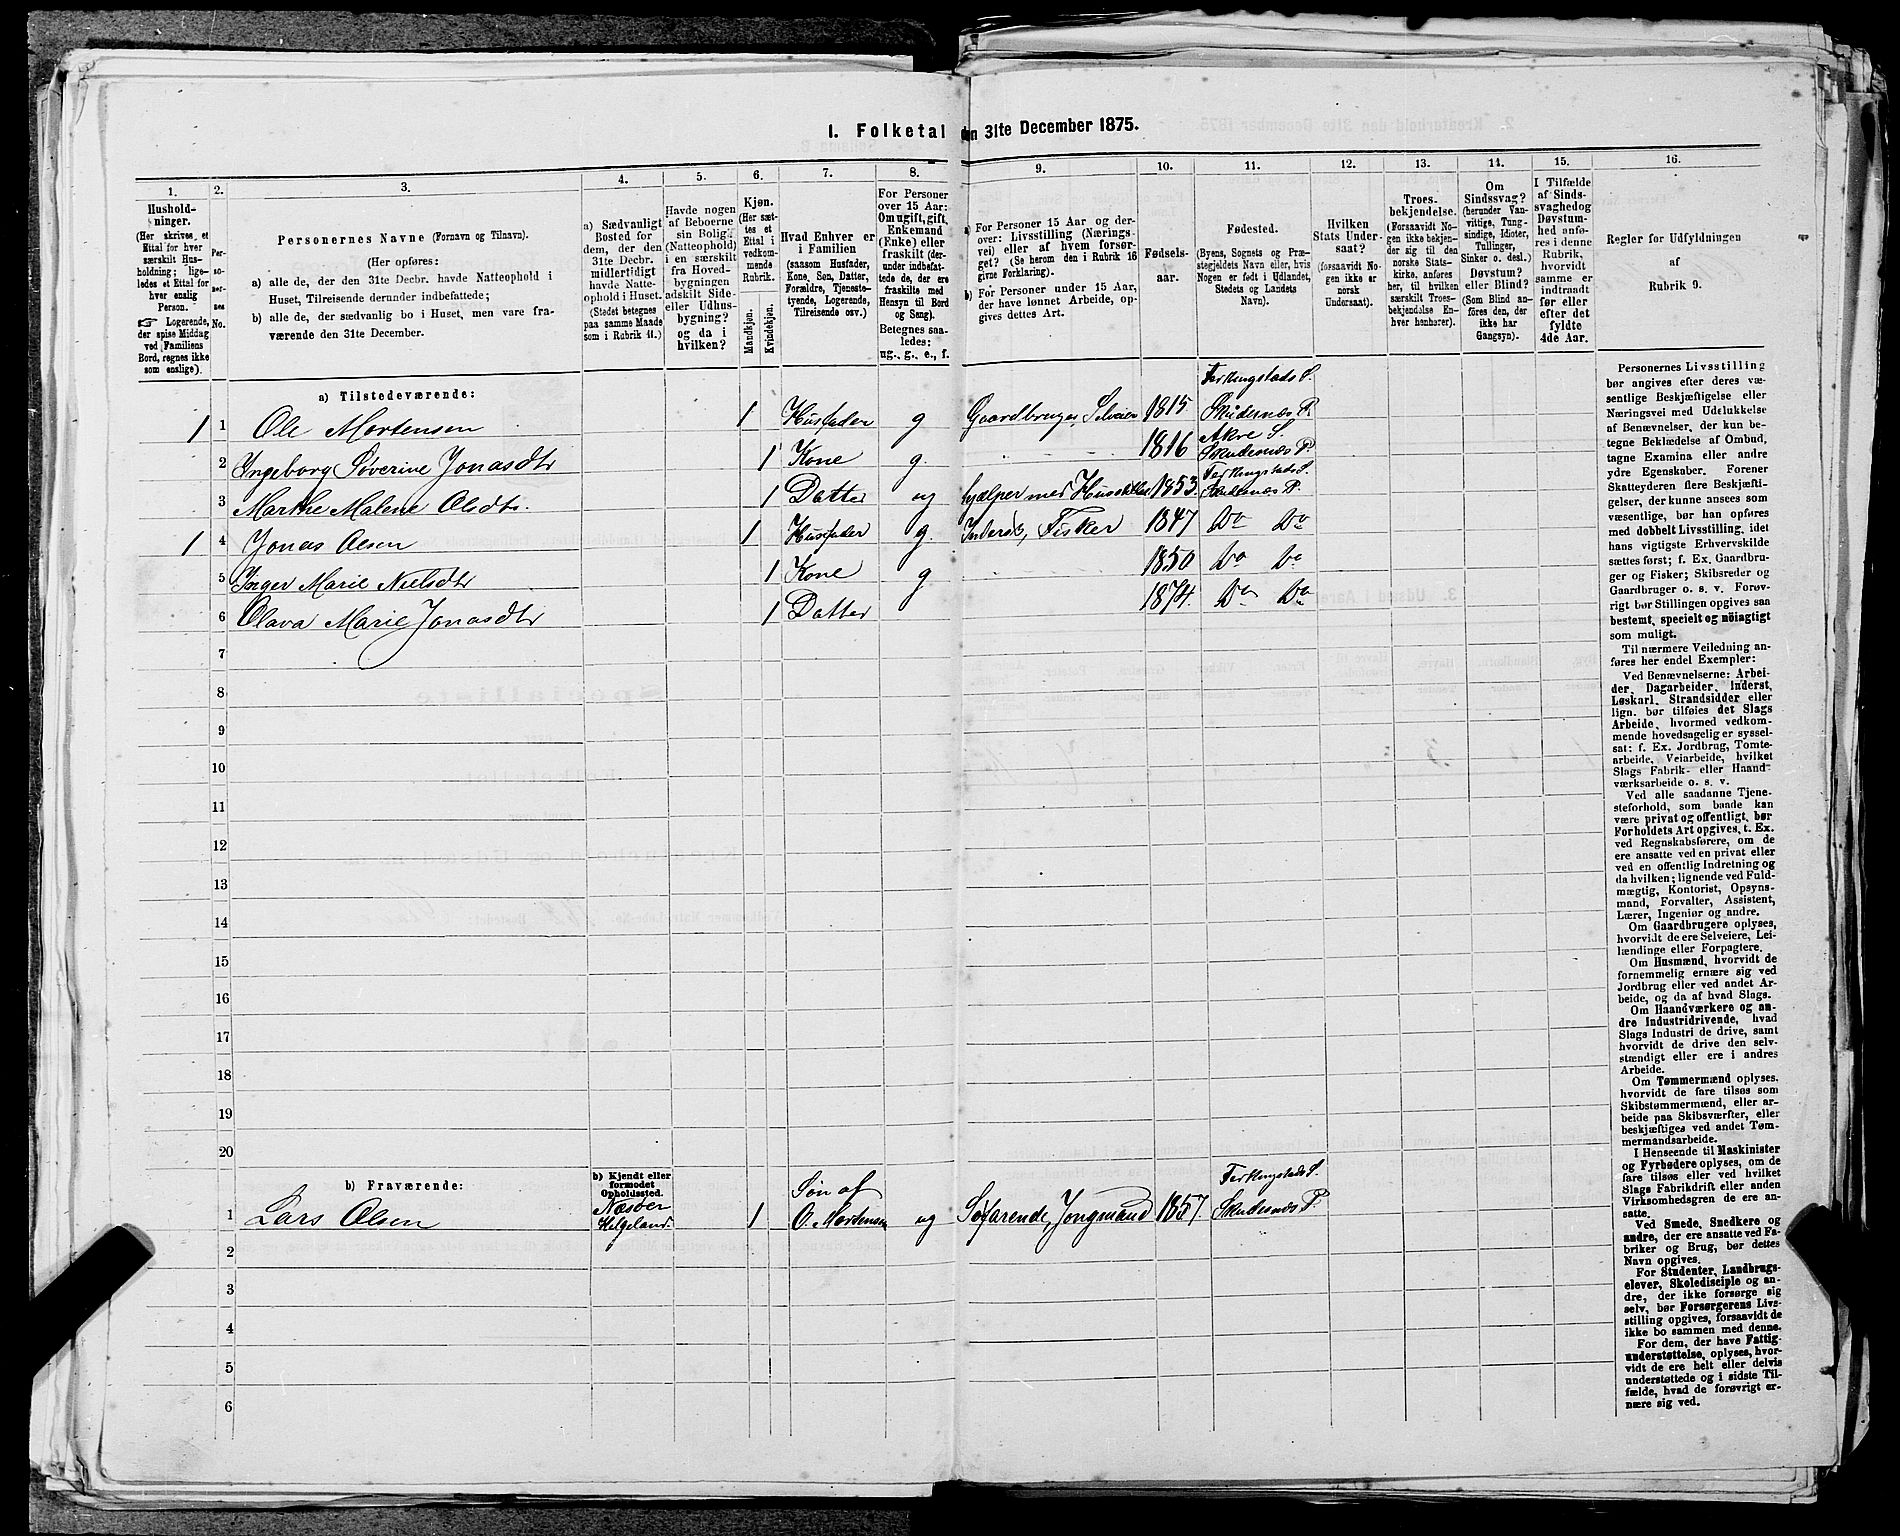 1. Folketal den 31te December 1875.
1.
2.
3.
4.
5.
6.
7.
8.
9.
10.
11.
12.
13.
14.
15.
16.
Hushold-
ninger.
(Her skrives et
Ettal for hver
særskilt Hus-
holdning; lige-
ledes et Ettal for
hver enslig
Person.
☞ Logerende,
der spise Middag
ved Familiens
Bord, regnes ikke
som enslige).
Per-
so-
ner-
nes
No.
Personernes Navne (Fornavn og Tilnavn).
(Her opføres:
a) alle de, der den 31te Decbr. havde Natteophold i
Huset, Tilreisende derunder indbefattede;
b) alle de, der sædvanlig bo i Huset, men vare fra-
værende den 31te December.
a) Sædvanligt
Bosted for
dem, der den
31te Decbr.
midlertidigt
havde Natte-
ophold i Huset.
(Stedet betegnes
paa samme Maade
som i Rubrik 11.)
Havde nogen
af Beboerne
sin Bolig
(Natteophold)
i en særskilt
fra Hoved-
bygningen
adskilt Side-
eller Udhus-
bygning?
og da i
hvilken?
Kjøn.
(Her sæt-
tes et
Ettal i
vedkom-
mende
Rubrik.
Mandkjøn.
Kvindekjøn.
Hvad Enhver er
i Familien
(saasom Husfader,
Kone, Søn, Datter,
Forældre, Tjeneste-
tyende, Logerende,
Tilreisende osv.)
For Personer
over 15 Aar:
Om ugift, gift,
Enkemand
(Enke) eller
fraskilt (der-
under indbefat-
tede de, der ere
fraskilte med
Hensyn til Bord
og Seng).
Betegnes saa-
ledes:
ug., g., e., f.
a) For Personer 15 Aar og der-
over: Livsstilling (Nærings-
vei) eller af hvem forsør-
get? (Se herom den i Rubrik 16
givne Forklaring).
b) For Personer under 15 Aar,
der have lønnet Arbeide, op-
gives dettes Art.
Fødsels-
aar.
Fødested.
(Byens, Sognets og Præ-
stegjeldets Navn eller, hvis
Nogen er født i Udlandet,
Stedets og Landets
Navn).
Hvilken
Stats Under-
saat?
(forsaavidt No-
gen ikke er
norsk
Undersaat).
Troes-
bekjendelse.
(Forsaavidt No-
gen ikke bekjen-
der sig til den
norske Stats-
kirke, anføres
her, til hvilken
særskilt Troes-
bekjendelse En-
hver henhører).
Om
Sindssvag?
(herunder Van-
vittige, Tung-
sindige, Idioter,
Tullinger,
Sinker o. desl.)
Døvstum?
eller Blind?
(Som Blind an-
føres den, der
ikke har
Gangsyn).
I Tilfælde
af Sinds-
svaghed og
Døvstum-
hed anfø-
res i denne
Rubrik,
hvorvidt
samme er
indtraadt
før eller
efter det
fyldte
4de Aar.
Regler for Udfyldningen
af
Rubrik 9.
a) Tilstedeværende:
1 1 Ole Mortensen 1 Husfader g Gaardbruger, Selveier 1815 Ferkingstads S. Skudesnæs P.
2 Ingeborg Søverine Jonasdtr 1 Kone g. 1816 Akre S. Skudesnæs P.
3 Marthe Malene Olsdtr. 1 Datter ug hjælper med Husstellet 1853. Ferkingstads S. Skudesnæs P.
1 4 Jonas Olsen 1 Husfader g. Inderst, Fisker 1847 Do Do
5 Inger Marie Nielsdtr 1 Kone g 1850 Do Do
6 Olava Marie Jonasdtr 1 Datter 1874. Do Do
7
8
9
10
11
12
13
14
15
16
17
18
19
20
b) Fraværende:
b) Kjendt eller
formodet
Opholdssted.
1 Lars Olsen Næsøen Helgeland. 1 Søn af O. Mortensen ug Søfarende, Jongmand 1857 Ferkingstads S. Skudesnæs P.
2
3
4
5
6
Personernes Livsstilling
bør angives efter deres væ-
sentlige Beskjæftigelse eller
Næringsvei med Udelukkelse
af Benævnelser, der kun be-
tegne Beklædelse af Ombud,
tagne Examina eller andre
ydre Egenskaber. Forener
Skatteyderen flere Beskjæfti-
gelser, der kunne ansees som
væsentlige, bør han opføres
med dobbelt Livsstilling, idet
hans vigtigste Erhvervskilde
sættes først; f. Ex. Gaardbru-
ger og Fisker; Skibsreder og
Gaardbruger o. s. v. Forøv-
rigt bør Stillingen opgives saa
bestemt, specielt og nöiagtigt
som muligt.
Til nærmere Veiledning an-
føres her endel Exempler:
Ved Benævnelserne: Arbei-
der, Dagarbeider, Inderst,
Løskarl, Strandsidder eller
lign. bør tilføies det Slags
Arbeide, hvormed vedkom-
mende hovedsagelig er syssel-
sat: f. Ex. Jordbrug, Tomte-
arbeide, Veiarbeide, hvilket
Slags Fabrik- eller Haand-
værksarbeide o. s. v.
Ved alle saadanne Tjene-
steforhold, som baade kan
være privat og offentligt, bør
Forholdets Art opgives, t. Ex.
ved Regnskabsførere, om de
ere ansatte ved en privat eller
ved en offentlig Indretning og
da hvilken; lignende ved Fuld-
mægtig, Kontorist, Opsyns-
mand, Forvalter, Assistent,
Lærer, Ingeniør og andre.
Om Gaardbrugere oplyses,
hvorvidt de ere Selveiere, Lei-
lændinge eller Forpagtere.
Om Husmænd, hvorvidt de
fornemmelig ernære sig ved
Jordbrug eller ved andet Ar-
beide, og da af hvad Slags.
Om Haandværkere og an-
dre Industridrivende, hvad
Slags Industri de drive, samt
hvorvidt de drive den selv-
stændigt eller ere i andres
Arbeide.
Om Tømmermænd oplyses,
hvorvidt de fare tilsøs som
Skibstømmermænd, eller ar-
beide paa Skibsværfter, eller
beskjæftiges ved andet Tøm-
mermandsarbeide.
I Henseende til Maskinister
og Fyrbødere oplyses, om de
fare tilsøs eller ved hvilket
Slags Fabrikdrift eller anden
Virksomhedsgren de ere an-
satte.
Ved Smede, Snedkere og
andre, der ere ansatte ved Fa-
briker og Brug, bør dettes
Navn opgives.
For Studenter, Landbrugs-
elever, Skoledisciple og an-
dre, der ikke forsørge sig
selv, bør Forsørgerens Livs-
stilling opgives, forsaavidt de
ikke bo sammen med denne.
For dem, der have Fattig-
understøttelse, oplyses, hvor-
vidt de ere helt eller delvis
understøttede og i sidste Til-
fælde, hvad de forøvrigt er-
nære sig ved.